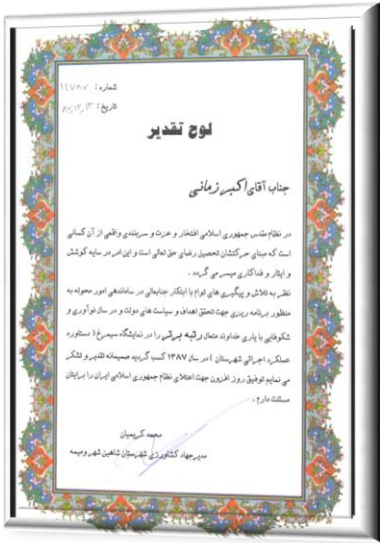 شماره :
تاریخ : ۸۷/۱۲/۱۳
لوح تقدیر
جناب آقای اکبر زمانی
در نظام مقدس جمهوری اسلامی افتخار و عزت و سربلندی واقعی از آن کسانی
است که مبنای حرکتشان تحصیل رضای حق تعالی است و این امر در سایه کوشش
و ایثار و فداکاری میسر می گردد .
نظر به تلاش و پیگیری های توام با ابتکار جنابعالی در ساماندهی امور محوله به
منظور برنامه ریزی جهت تحقق اهداف و سیاست های دولت و در سال نوآوری و
شکوفایی با یاری خداوند متعال رتبه برتر را در نمایشگاه سیمرغ ( دستاورد
عملکرد اجرائی شهرستان ) در سال ۱۳۸۷ کسب گردید صمیمانه تقدیر و تشکر
می نمایم توفیق روز افزون جهت اعتلای نظام جمهوری اسلامی ایران را برایتان
مسئلت دارم .
محمد کریمیان
مدیر جهاد کشاورزی شهرستان شاهین شهر و میمه